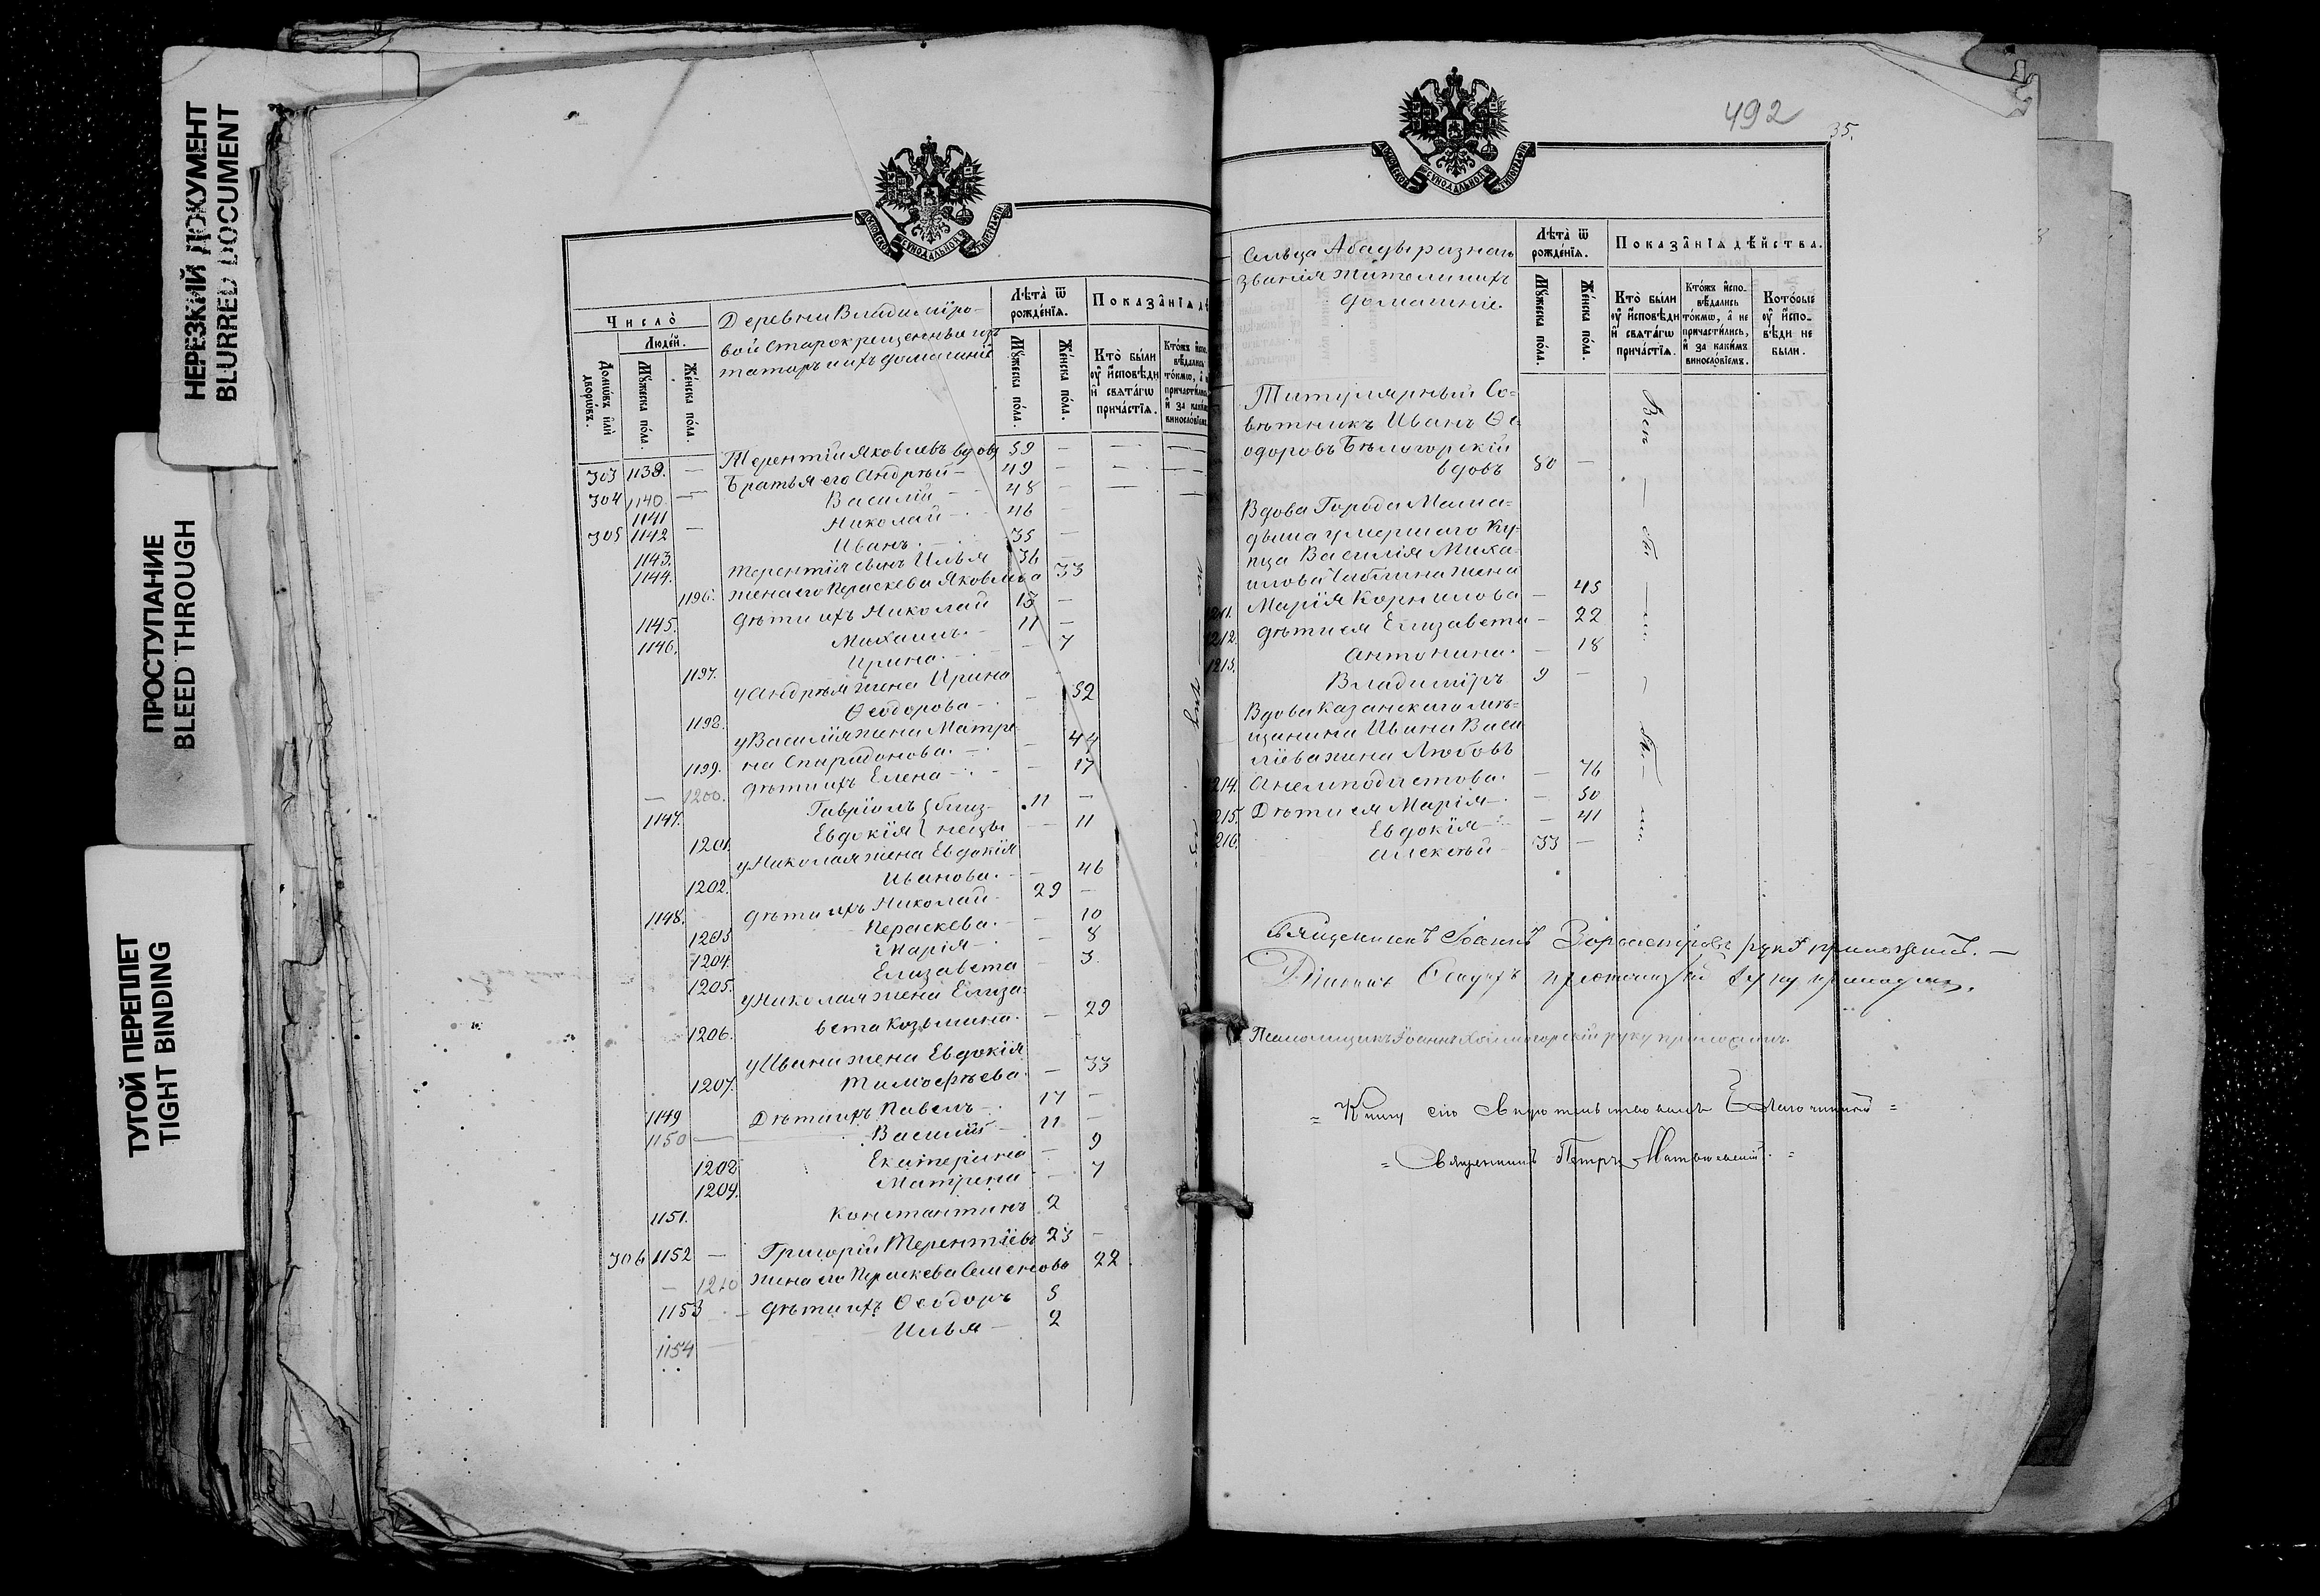 НЕРЕЗКИЙ ДОКУМЕНТ
BLURRED DOCUMENT
ПРОСТУПАНИЕ
BLEED THROUGH
ТУГОЙ ПЕРЕПЛЕТ
TIGHT BINDING
Число̀
Людей.
Домѡ́въ и҆лѝ дворѡ́въ.
Мꙋ́жеска по́ла
Же́нска по́ла.
Деревни Владимиро-
вой Старокрещенные изъ
татаръ и ихъ домашніе
Лѣта̀ ѿ рожде́нїѧ.
Мꙋ́жеска по́ла.
Же́нска по́ла.
Кто̀ бы́ли ᲂу҆ и҆сповѣди и҆ свѧта́гѡ прича́стїѧ.
303 1139. — Терентій Яковлевъ вдовъ 59 — — —
304 1140. — Братья его Андрей — 49 — — —
1141 Василій — 48 — — —
305 1142 — Николай — 46 —
1143. Иванъ — 35 —
1144. Терентія сынъ Илья 36 —
1196. жена его Параскева Яковлева 33
1145. дѣти ихъ Николай 13 —
1146. Михаилъ — 11 —
1197. Ирина — — 7
у Андрея жена Ирина
1198. Ѳеодорова — — 52
у Василія жена Матре-
1199. на Спиридонова. — 44
— 1200. дѣти ихъ Елена — — 17
1147. Гавріилъ близ- 11 —
1201. Евдокія нецы — 11
у Николая жена Евдокія
1202. Иванова. — 46
1148. дѣти ихъ Николай 29 —
1203 Параскева. — 10
1204. Марія — 8
1205. Елизавета — 3.
у Николая жена Елиза-
1206. вета Козьмина. — 29
у Ивана жена Евдокія
1207. Тимоѳеева. — 33
1149 Дѣти ихъ Павелъ — 17 —
1150 — Василій — 11 —
1208 Екатерина — 9
1209. Матрена — 7
1151. Константинъ 2
306 1152 — Григорій Терентіевъ 23 —
— 1210 жена его Параскева Семенова 22
1153 — дѣти ихъ Ѳеодоръ 5
1154 — Илья — 2
492
35.
Сельца Абады разнаго
званія жители и ихъ
домашніе.
Лѣта̀ ѿ рожде́нїѧ.
Показа̑нїѧ дѣ́йства.
Мꙋ́жеска по́ла.
Же́нска по́ла.
Кто̀ бы́ли ᲂу҆ и҆сповѣди и҆ свѧта́гѡ прича́стїѧ.
Кто́жъ и҆спо- вѣ́дались то́кмѡ, а҆ не причасти́лись, и҆ за каки́мъ винесло́вїемъ.
Кото́рыѣ ᲂу҆ и҆спо- вѣ́ди не бы́ли.
Титулярный Со-
вѣтникъ Иванъ Ѳе-
одоровъ Бѣлогорскій
вдовъ 80 —
Вдова Города Мама-
дыша умершаго Ку-
пца Василія Миха-
илова жена
1211. Марія Корнилова — 45
1212. дѣти ея Елизавета — 22
1213. Антонина. — 18
Владиміръ 9 —
Вдова Казанскаго мѣ-
щанина Ивана Васи
ліева жена Любовь
1214. Анемподистова. — 76
1215. Дѣти ея Марія — 50
1216. Евдокія — 41
Алексѣй 33 —
Священникъ Іоаннъ руку приложилъ. —
Псаломщикъ Іоаннъ руку приложилъ.
= Книгу сію Свидѣтельствовалъ Благочинный =
= Священникъ Петръ =